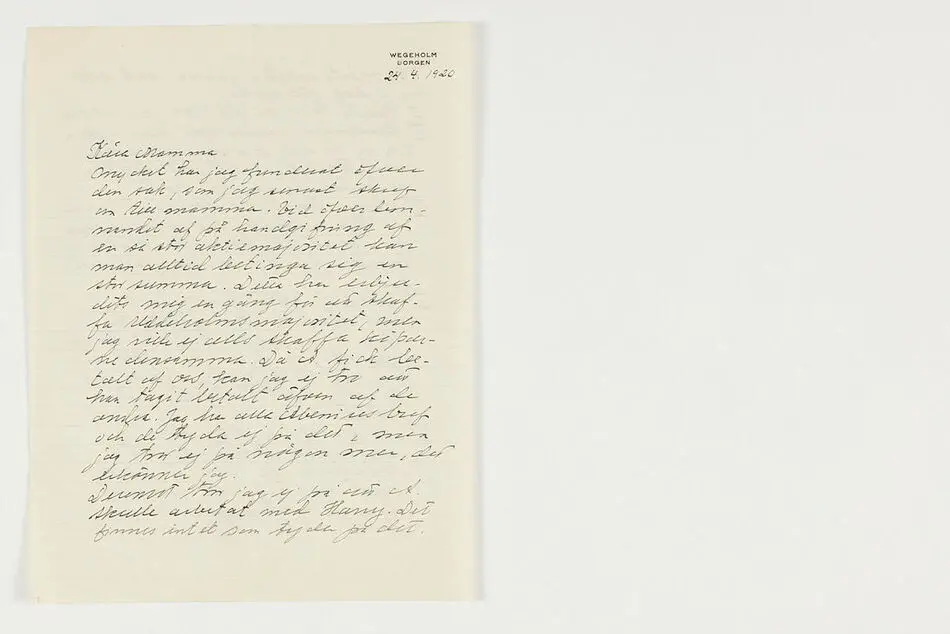 WEGEHOLM
BORGEN
24. 4. 1920
Kära Mamma
Mycket har jag funderat öfver
den sak, som jag senast skref
om till mamma. Vid öfverläm-
nandet af på handgifning af
en så stor aktiemajoritet kan
man alltid betinga sig en
stor summa. Detta har erbju-
dits mig en gång för att skaf-
fa Uddeholmsmajoritet, men
jag ville ej alls skaffa köpar-
ne densamma. Då A. fick be-
talt af oss, kan jag ej tro att
han tagit betalt äfven af de
andra. Jag har alla bref
och de tyda ej på det, men
jag tror ej på någon mer, det
erkänner jag.
Deremot tror jag ej på att A.
skulle arbetat med Harry. Det
finnes intet som tyder på det.